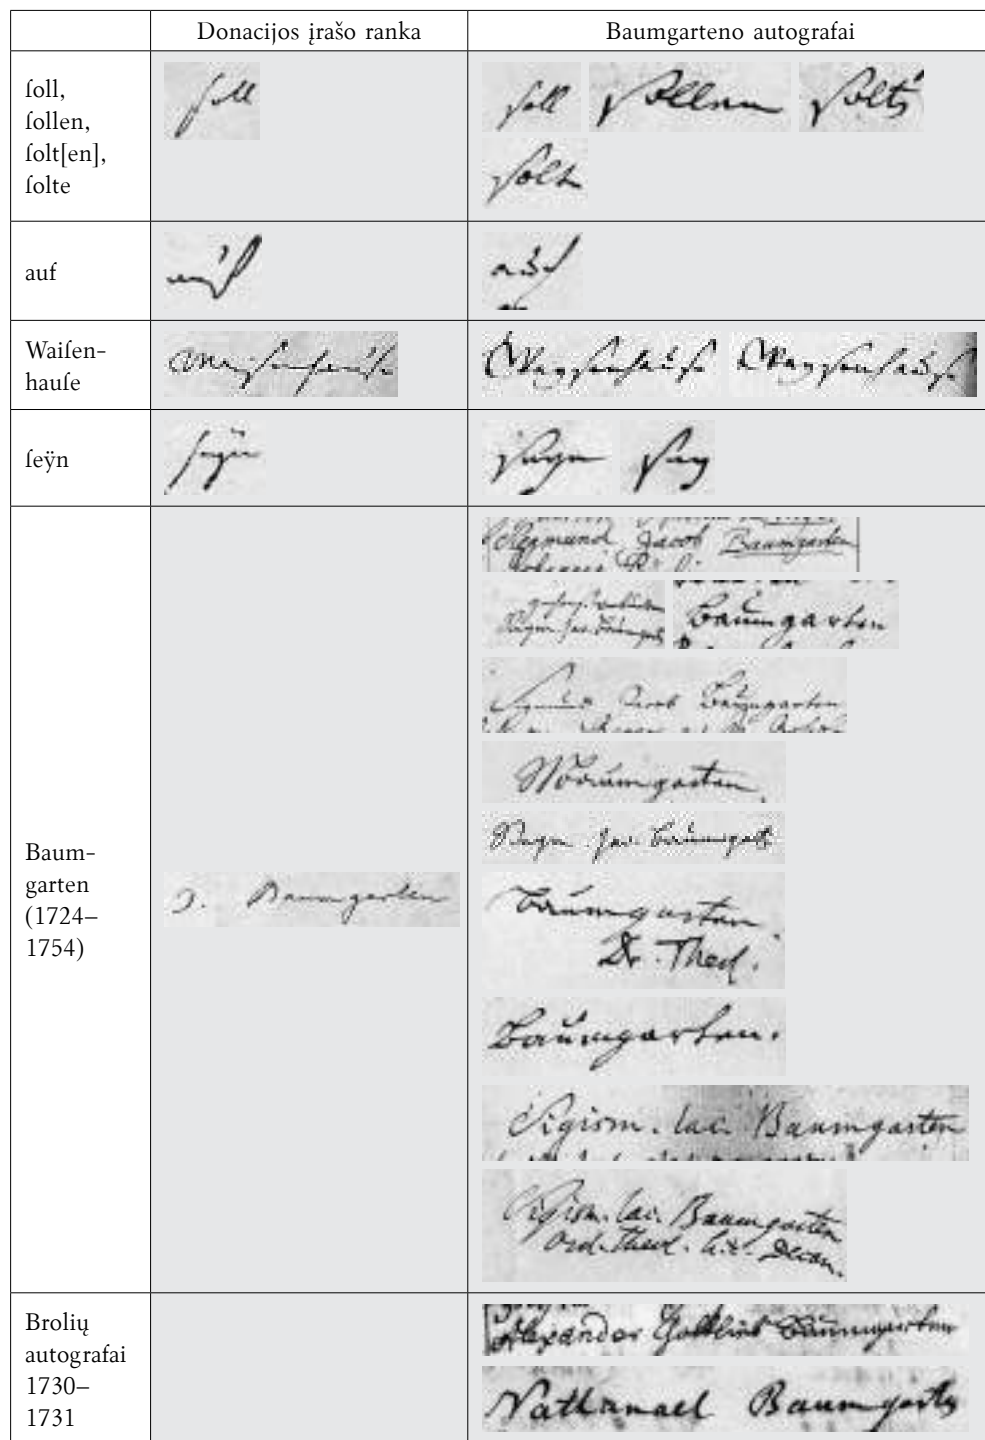 Donacijos įrašo ranka Baumgarteno autografai
ſoll,
ſollen,
ſolt[en],
ſolte
soll soll sollen
auf auf auf
Waiſen-
hauſe
Waisenhause Waysenhause Waysenhause
ſeÿn
seÿn seyn sey
Baum-
garten
(1724–
1754)
D. Baumgarten
Sigismund Jacob Baumgarten
Baumgarten
Sigmund Jacob Baumgarten
Baumgarten
Dr. Theol.
Baumgarten.
Sigism. Iac. Baumgarten
Sigism. Iac. Baumgarten
Ord. Theol. Decan.
Brolių
autografai
1730–
1731
Alexander Gottlieb Baumgarten
Nathanael Baumgarten